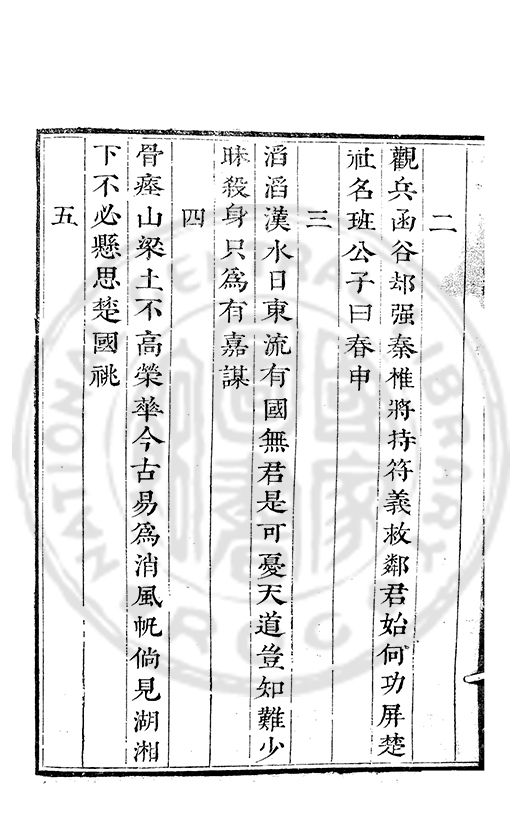 二
觀兵函谷却强秦椎將持符義救鄰君始何功屏楚
社名班公子曰春申
三
滔滔漢水日東流有國無君是可憂天道豈知難少
昧殺身只爲有嘉謀
四
骨瘞山梁土不高榮華今古易爲消風帆倘見湖湘
下不必懸思楚國祧
五